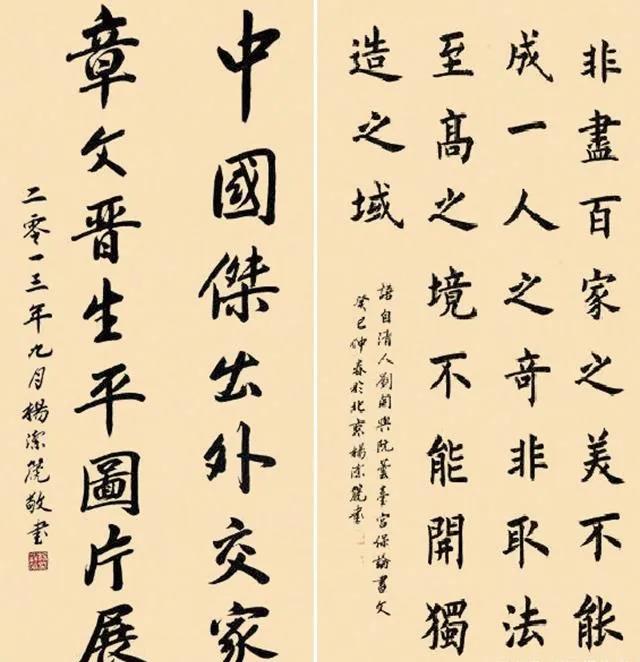 中國傑出外交家
章文晋生平圖片展
二零一三年九月楊潔篪敬書
非盡百家之美不能
成一人之奇非取法
至高之境不能開獨
造之域
語自清人劉開與阮蕓臺宮保論書文
癸巳仲春於北京楊潔篪書